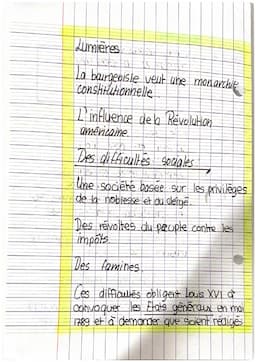 Lumières
La bourgeoisie veut une monarchie
constitutionnelle
L'influence de la Révolution
américaine
Des difficultés sociales :
Une société basée sur les privilèges
de la noblesse et du clergé.
Des révoltes du peuple contre les
impôts
Des famines.
Ces difficultés obligent Louis XVI à
convoquer les États généraux en mai
1789 et à demander que soient rédigés